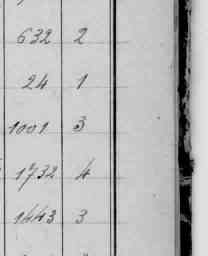 632 2
24 1
1001 3
1732 4
1443 3